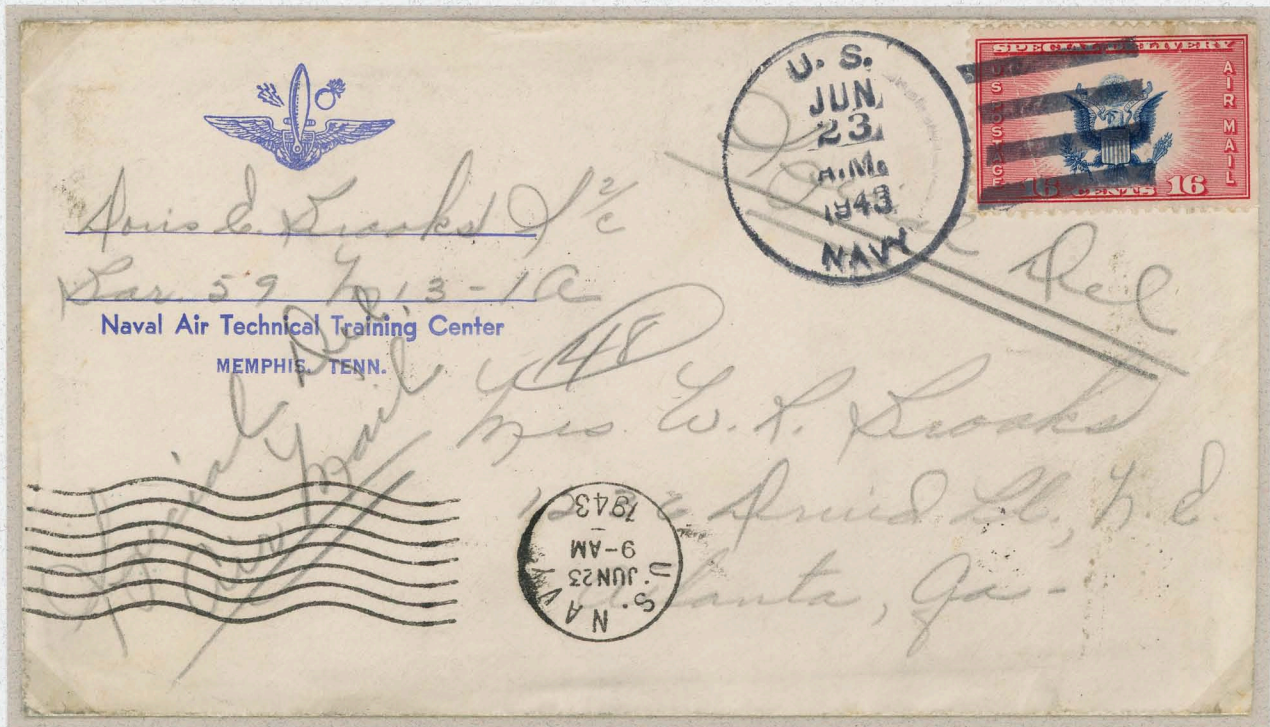 Doris E. Brooks S 2/c
Bar. 59 N. 13-1A
Naval Air Technical Training Center
MEMPHIS, TENN.
U. S.
JUN
23
A.M.
1943
NAVY
SPECIAL DELIVERY
U S POSTAGE
AIR MAIL
16 CENTS 16
Del
48
Special Del.
Air Mail
Mrs. W. R. Brooks
Druid N. E
Atlanta, Ga-
U. S. NAVY
JUN 23
9-AM
1943